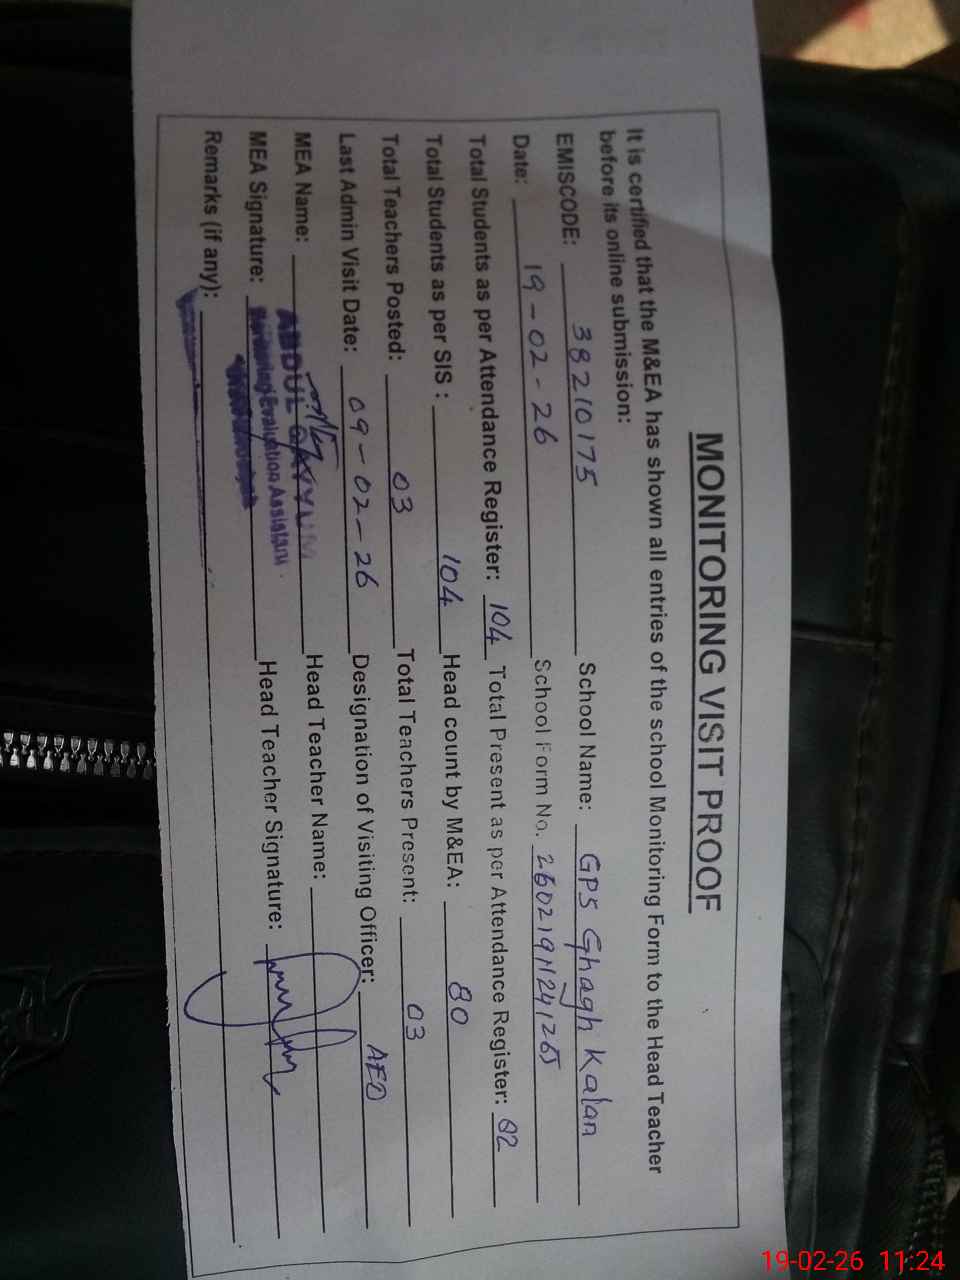 MONITORING VISIT PROOF
It is certified that the M&EA has shown all entries of the school Monitoring Form to the Head Teacher
before its online submission:
EMISCODE: 38210175 School Name: GPS Ghagh Kalan
Date: 19-02-26 School Form No. 26021911241265
Total Students as per Attendance Register: 104 Total Present as per Attendance Register: 82
Total Students as per SIS : 104 Head count by M&EA: 80
Total Teachers Posted: 03 Total Teachers Present: 03
Last Admin Visit Date: 09-02-26 Designation of Visiting Officer: AEO
MEA Name: ABDUL QAYYUM Head Teacher Name:
MEA Signature: Monitoring Evaluation Assistant Head Teacher Signature:
Remarks (if any):
19-02-26 11:24